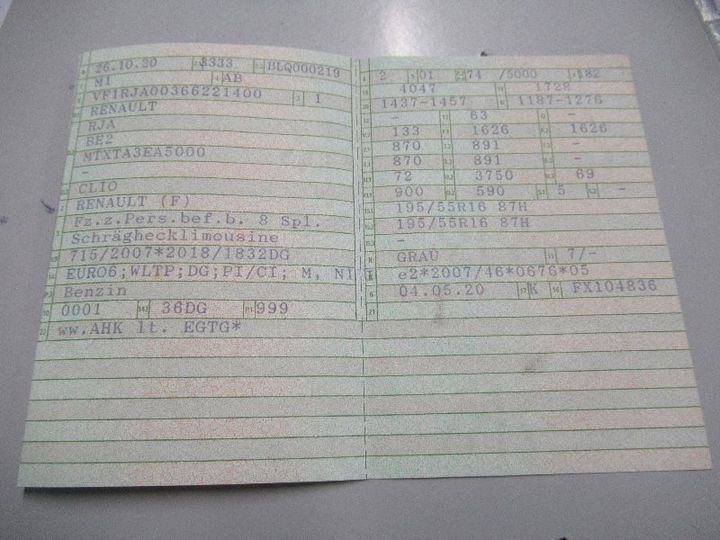 26.10.20 3333 BLQ000219
M1 AB
VF1RJA00366221400 1
RENAULT
RJA
BE2
MTXTA3EA5000
-
CLIO
RENAULT (F)
Fz.z.Pers.bef.b. 8 Spl.
Schräghecklimousine
715/2007*2018/1832DG
EURO6;WLTP;DG;PI/CI; M, NI
Benzin
0001 36DG 999
ww.AHK lt. EGTG*
2 01 74 /5000 182
4047 1728
1437-1457 1187-1276
- 63 -
133 1626 1626
870 891 -
870 891 -
72 3750 69
900 590 5 -
195/55R16 87H
195/55R16 87H
-
GRAU 7/-
e2*2007/46*0676*05
04.05.20 K FX104836